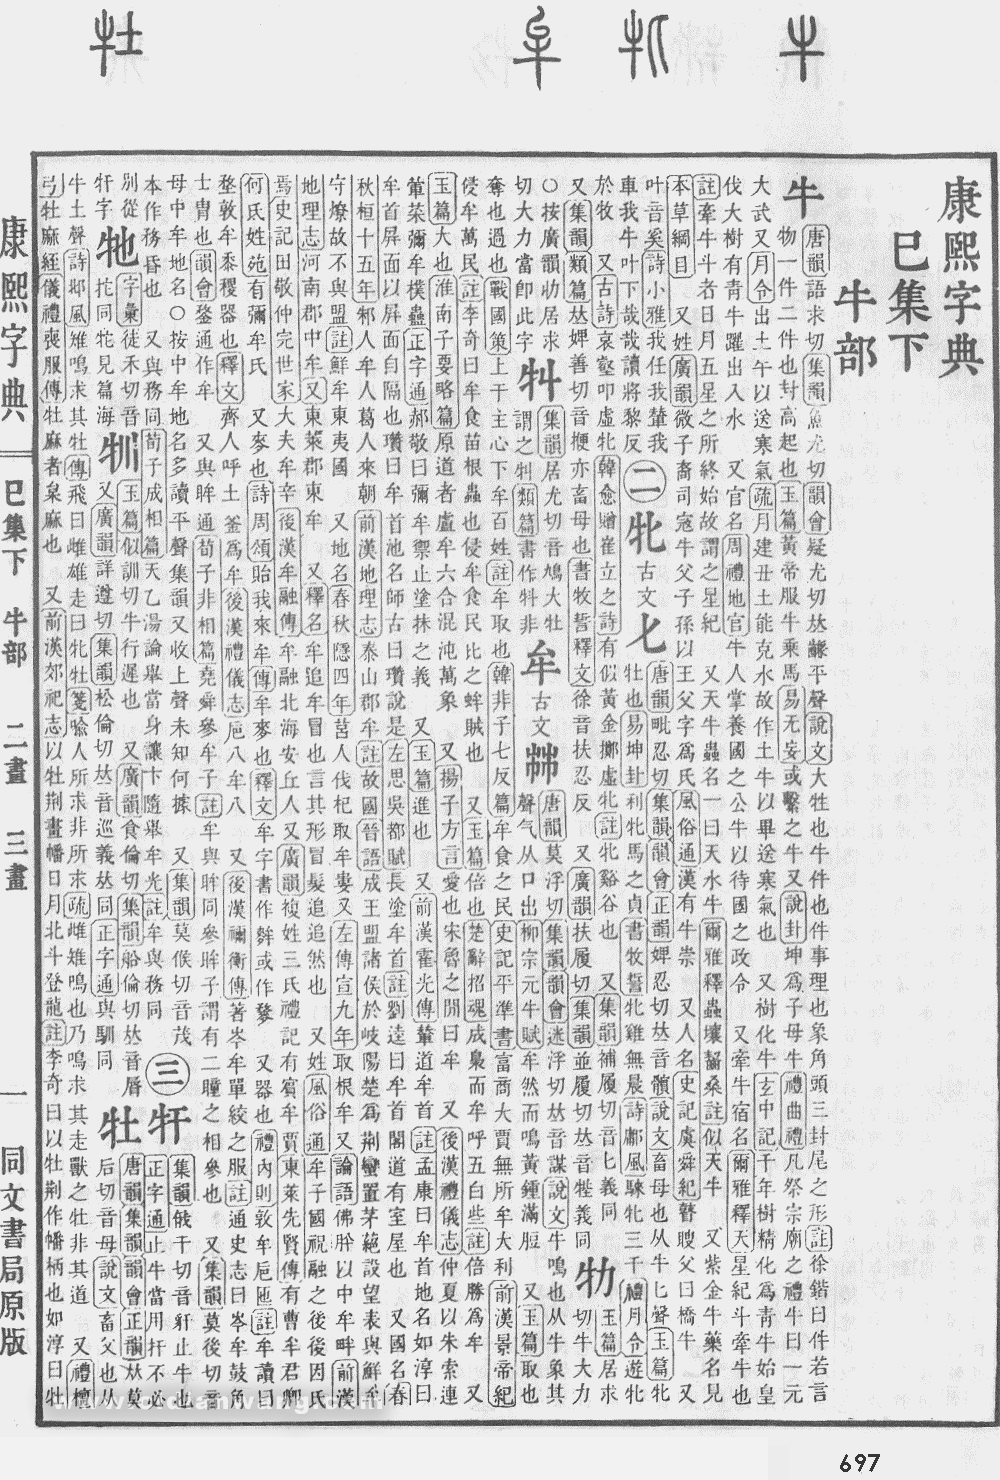 康熙字典
巳集下
牛部
牛
唐韻語求切集韻魚尤切韻會疑尤切𠀤齵平聲說文大牲也牛件也件事理也象角頭三封尾之形註徐鍇曰件若言
物一件二件也封高起也玉篇黃帝服牛乘馬易无妄或繫之牛又說卦坤爲子母牛禮曲禮凡祭宗廟之禮牛曰一元
大武又月令出土牛以送寒氣疏月建丑土能克水故作土牛以畢送寒氣也 又樹化牛玄中記千年樹精化爲靑牛始皇
伐大樹有靑牛躍出入水 又官名周禮地官牛人掌養國之公牛以待國之政令 又牽牛宿名爾雅釋天星紀斗牽牛也
註牽牛斗者日月五星之所終始故謂之星紀 又天牛蟲名一曰天水牛爾雅釋蟲蠰齧桑註似天牛 又紫金牛藥名見
本草綱目 又姓廣韻微子裔司寇牛父子孫以王父字爲氏風俗通漢有牛崇 又人名史記虞舜紀瞽瞍父曰橋牛 又
叶音奚詩小雅我任我輦我
車我牛叶下哉哉讀將黎反
二
牝 古文 𠤎
唐韻毗忍切集韻韻會正韻婢忍切𠀤音髕說文畜母也从牛匕聲玉篇牝
牡也易坤卦利牝馬之貞書牧誓牝雞無晨詩鄘風騋牝三千禮月令遊牝
於牧 又古詩哀壑叩虛牝韓愈贈崔立之詩有似黃金擲虛牝註牝谿谷也 又集韻補履切音匕義同
又集韻類篇𠀤婢善切音楩亦畜母也書牧誓釋文徐音扶忍反 又廣韻扶履切集韻並履切𠀤音牲義同
牞
玉篇居求
切牛大力
○按廣韻㔢居求
切大力當卽此字
𤘔
集韻居尤切音鳩大牡
謂之𤘔類篇書作牪非
牟 古文
唐韻莫浮切集韻韻會迷浮切𠀤音謀說文牛鳴也从牛象其
聲气从口出柳宗元牛賦牟然而鳴黃鍾滿脰 又玉篇取也
奪也過也戰國策上干主心下牟百姓註牟取也韓非子七反篇牟食之民史記平準書富商大賈無所牟大利前漢景帝紀
侵牟萬民註李奇曰牟食苗根蟲也侵牟食民比之蛑賊也 又玉篇倍也楚辭招魂成梟而牟呼五白些註倍勝爲牟 又
玉篇大也淮南子要略篇原道者盧牟六合混沌萬象 又揚子方言愛也宋魯之閒曰牟 又後漢禮儀志仲夏以朱索連
葷菜彌牟樸蠱正字通郝敬曰彌牟禦止塗抹之義 又玉篇進也 又前漢霍光傳輦道牟首註孟康曰牟首地名如淳曰
牟首屛面以屛面自隔也瓚曰牟首池名師古曰瓚說是左思吳都賦長塗牟首註劉逵曰牟首閣道有室屋也 又國名春
秋桓十五年邾人牟人葛人來朝前漢地理志泰山郡牟註故國晉語成王盟諸侯於岐陽楚爲荆蠻置茅蕝設望表與鮮牟
守燎故不與盟註鮮牟東夷國 又地名春秋隱四年莒人伐杞取牟婁又左傳宣九年取根牟又論語佛肸以中牟畔前漢
地理志河南郡中牟又東萊郡東牟 又釋名牟追牟冒也言其形冒髮追追然也 又姓風俗通牟子國祝融之後後因氏
焉史記田敬仲完世家大夫牟辛後漢牟融傳牟融北海安丘人又廣韻複姓三氏禮記有賓牟賈東萊先賢傳有曹牟君卿
何氏姓苑有彌牟氏 又麥也詩周頌貽我來牟傳牟麥也釋文牟字書作麰或作𪍓 又器也禮內則敦牟巵匜註牟讀曰
堥敦牟黍稷器也釋文齊人呼土釜爲牟後漢禮儀志巵八牟八 又後漢禰衡傳著岑牟單絞之服註通史志曰岑牟鼓角
士冑也韻會鍪通作牟 又與眸通荀子非相篇堯舜參牟子註牟與眸同參眸子謂有二瞳之相參也 又集韻莫後切音
母中牟地名○按中牟地名多讀平聲集韻又收上聲未知何據 又集韻莫候切音茂
本作務昏也 又與務同荀子成相篇天乙湯論舉當身讓卞隨舉牟光註牟與務同
三
㸩
集韻俄干切音豻止牛也
正字通止牛當用扞不必
別從
牸字
牠
字彙徒禾切音
㸪
玉篇似訓切牛行遲也 又廣韻食倫切集韻船倫切𠀤音脣
又廣韻詳遵切集韻松倫切𠀤音巡義𠀤同正字通與馴同
牡
唐韻集韻韻會正韻𠀤莫
后切音母說文畜父也从
牛土聲詩邶風雉鳴求其牡傳飛曰雌雄走曰牝牡箋喻人所求非所求疏雌雉鳴也乃鳴求其走獸之牡非其道 又禮檀
弓牡麻絰儀禮喪服傳牡麻者枲麻也 又前漢郊祀志以牡荆畫幡日月北斗登龍註李奇曰以牡荆作幡柄也如淳曰牡
康熙字典 巳集下 牛部 二畫 三畫 一 同文書局原版
697